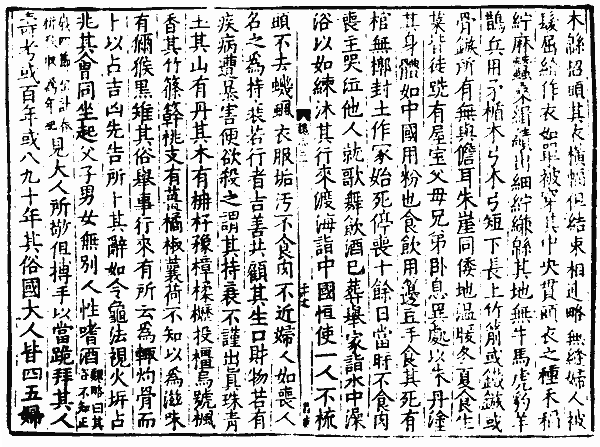 木緜招頭其衣橫幅但結束相連略無縫婦人被
髮屈紒作衣如單被穿其中央貫頭衣之種禾稻
紵麻蠶桑緝績出細紵縑緜其地無牛馬虎豹羊
鵲兵用矛楯木弓木弓短下長上竹箭或鐵鏃或
骨鏃所有無與儋耳朱崖同倭地溫暖冬夏食生
菜皆徒跣有屋室父母兄弟臥息異處以朱丹塗
其身體如中國用粉也食飲用籩豆手食其死有
棺無槨封土作冢始死停喪十餘日當時不食肉
喪主哭泣他人就歌舞飲酒已葬舉家詣水中澡
浴以如練沐其行來渡海詣中國恒使一人不梳
頭不去蟣蝨衣服垢汚不食肉不近婦人如喪人
名之為持衰若行者吉善共顧其生口財物若有
疾病遭暴害便欲殺之謂其持衰不謹出真珠青
土其山有丹其木有柟杼豫樟楺櫪投橿烏號楓
香其竹篠簳桃支有薑橘椒蘘荷不知以為滋味
有獮猴黑雉其俗舉事行來有所云為輒灼骨而
卜以占吉凶先告所卜其辭如令龜法視火坼占
兆其會同坐起父子男女無別人性嗜酒魏略曰其俗不知正
歲四節但計春耕秋收為年紀見大人所敬但搏手以當跪拜其人
壽考或百年或八九十年其俗國大人皆四五婦